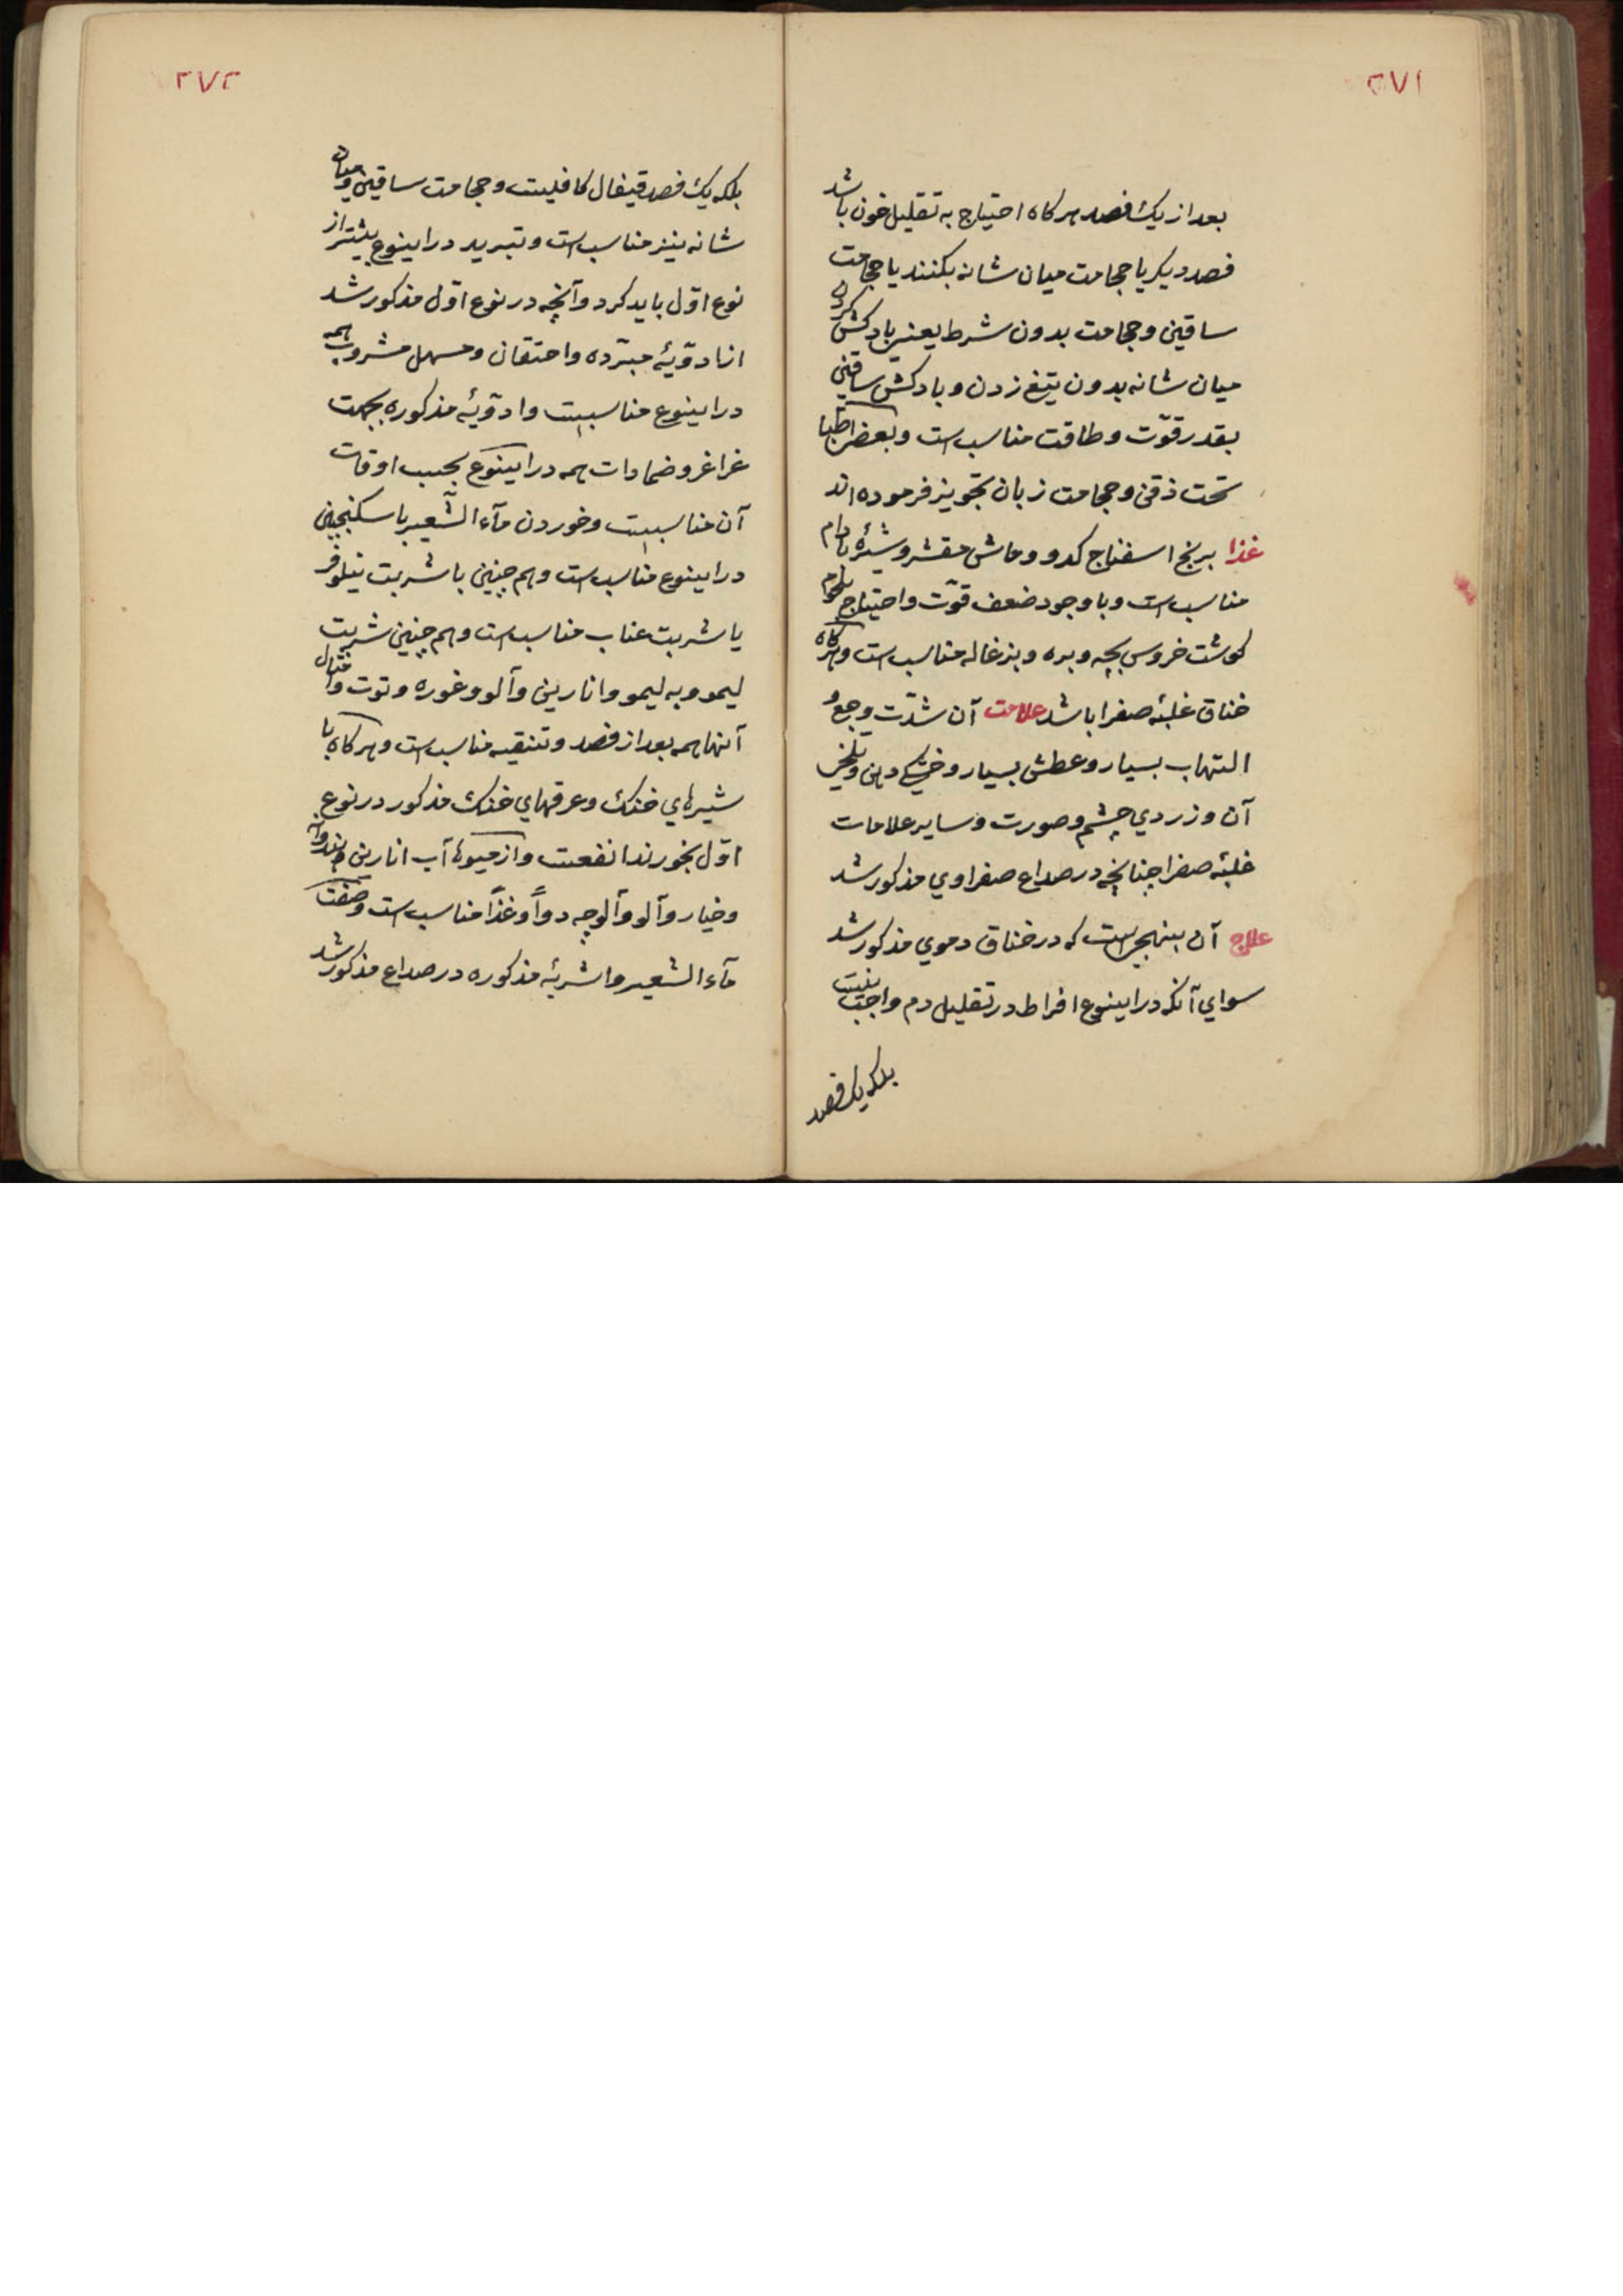 ۲۷۱
بعد از یک فصد هرکاه احتیاج به تقلیل خون باشد
فصد دیکر یا حجامت میان شانه بکنند یا حجامت
ساقین و حجامت بدون شرط یعنی بادکش کردن
میان شانه بدون تیغ زدن و بادکش ساقین
بقدر قوّت و طاقت مناسب است و بعضی اطبّا
تحت ذقن و حجامت زبان تجویز فرموده اند
غذا برنج اسفناج کدو و ماش مقشر و شیرۀ بادام
مناسب است و با وجود ضعف قوّت و احتیاج بلحوم
کوشت خروس بچه و بره و بزغاله مناسب است و هرکاه
خناق غلبۀ صفرا باشد علامت آن شدّت وجع و
التهاب بسیار و عطش بسیار و خشکی دهن و تلخی
آن و زردي چشم و صورت و سایر علامات
غلبۀ صفرا چنانچه در صداع صفراوي مذکور شد
علاج آن بنهجی است که در خناق دموي مذکور شد
سواي آنکه در اینوع افراط در تقلیل دم واجب نیست
بلکه یک فصد
۲۷۲
بلکه یک فصد قیفال کافیست و حجامت ساقین و میان
شانه نیز مناسب است و تبرید در اینوع بیشتر از
نوع اوّل باید کرد و آنچه در نوع اوّل مذکور شد
از ادویۀ مبرّده و احتقان و مسهل مشروب همه
در اینوع مناسبست و ادویۀ مذکوره بجهت
غراغر و ضمادات همه در اینوع بحسب اوقات
آن مناسبست و خوردن مآء الشّعیر با سکنجبین
در اینوع مناسب است و هم چنین با شربت نیلوفر
یا شربت عناب مناسب است و هم چنین شربت
لیمو و به لیمو و انارین و آلو و غوره و توت و امثال
آنها همه بعد از فصد و تنقیه مناسب است و هرکاه با
شیرهاي خنک و عرقهاي خنک مذکور در نوع
اوّل بخورند انفعست و از میوها آب انارین و هندوانه
و خیار و آلو و آلوچه دواً و غذاً مناسب است و صفت
مآء الشعیر و اشربۀ مذکوره در صداع مذکور شد